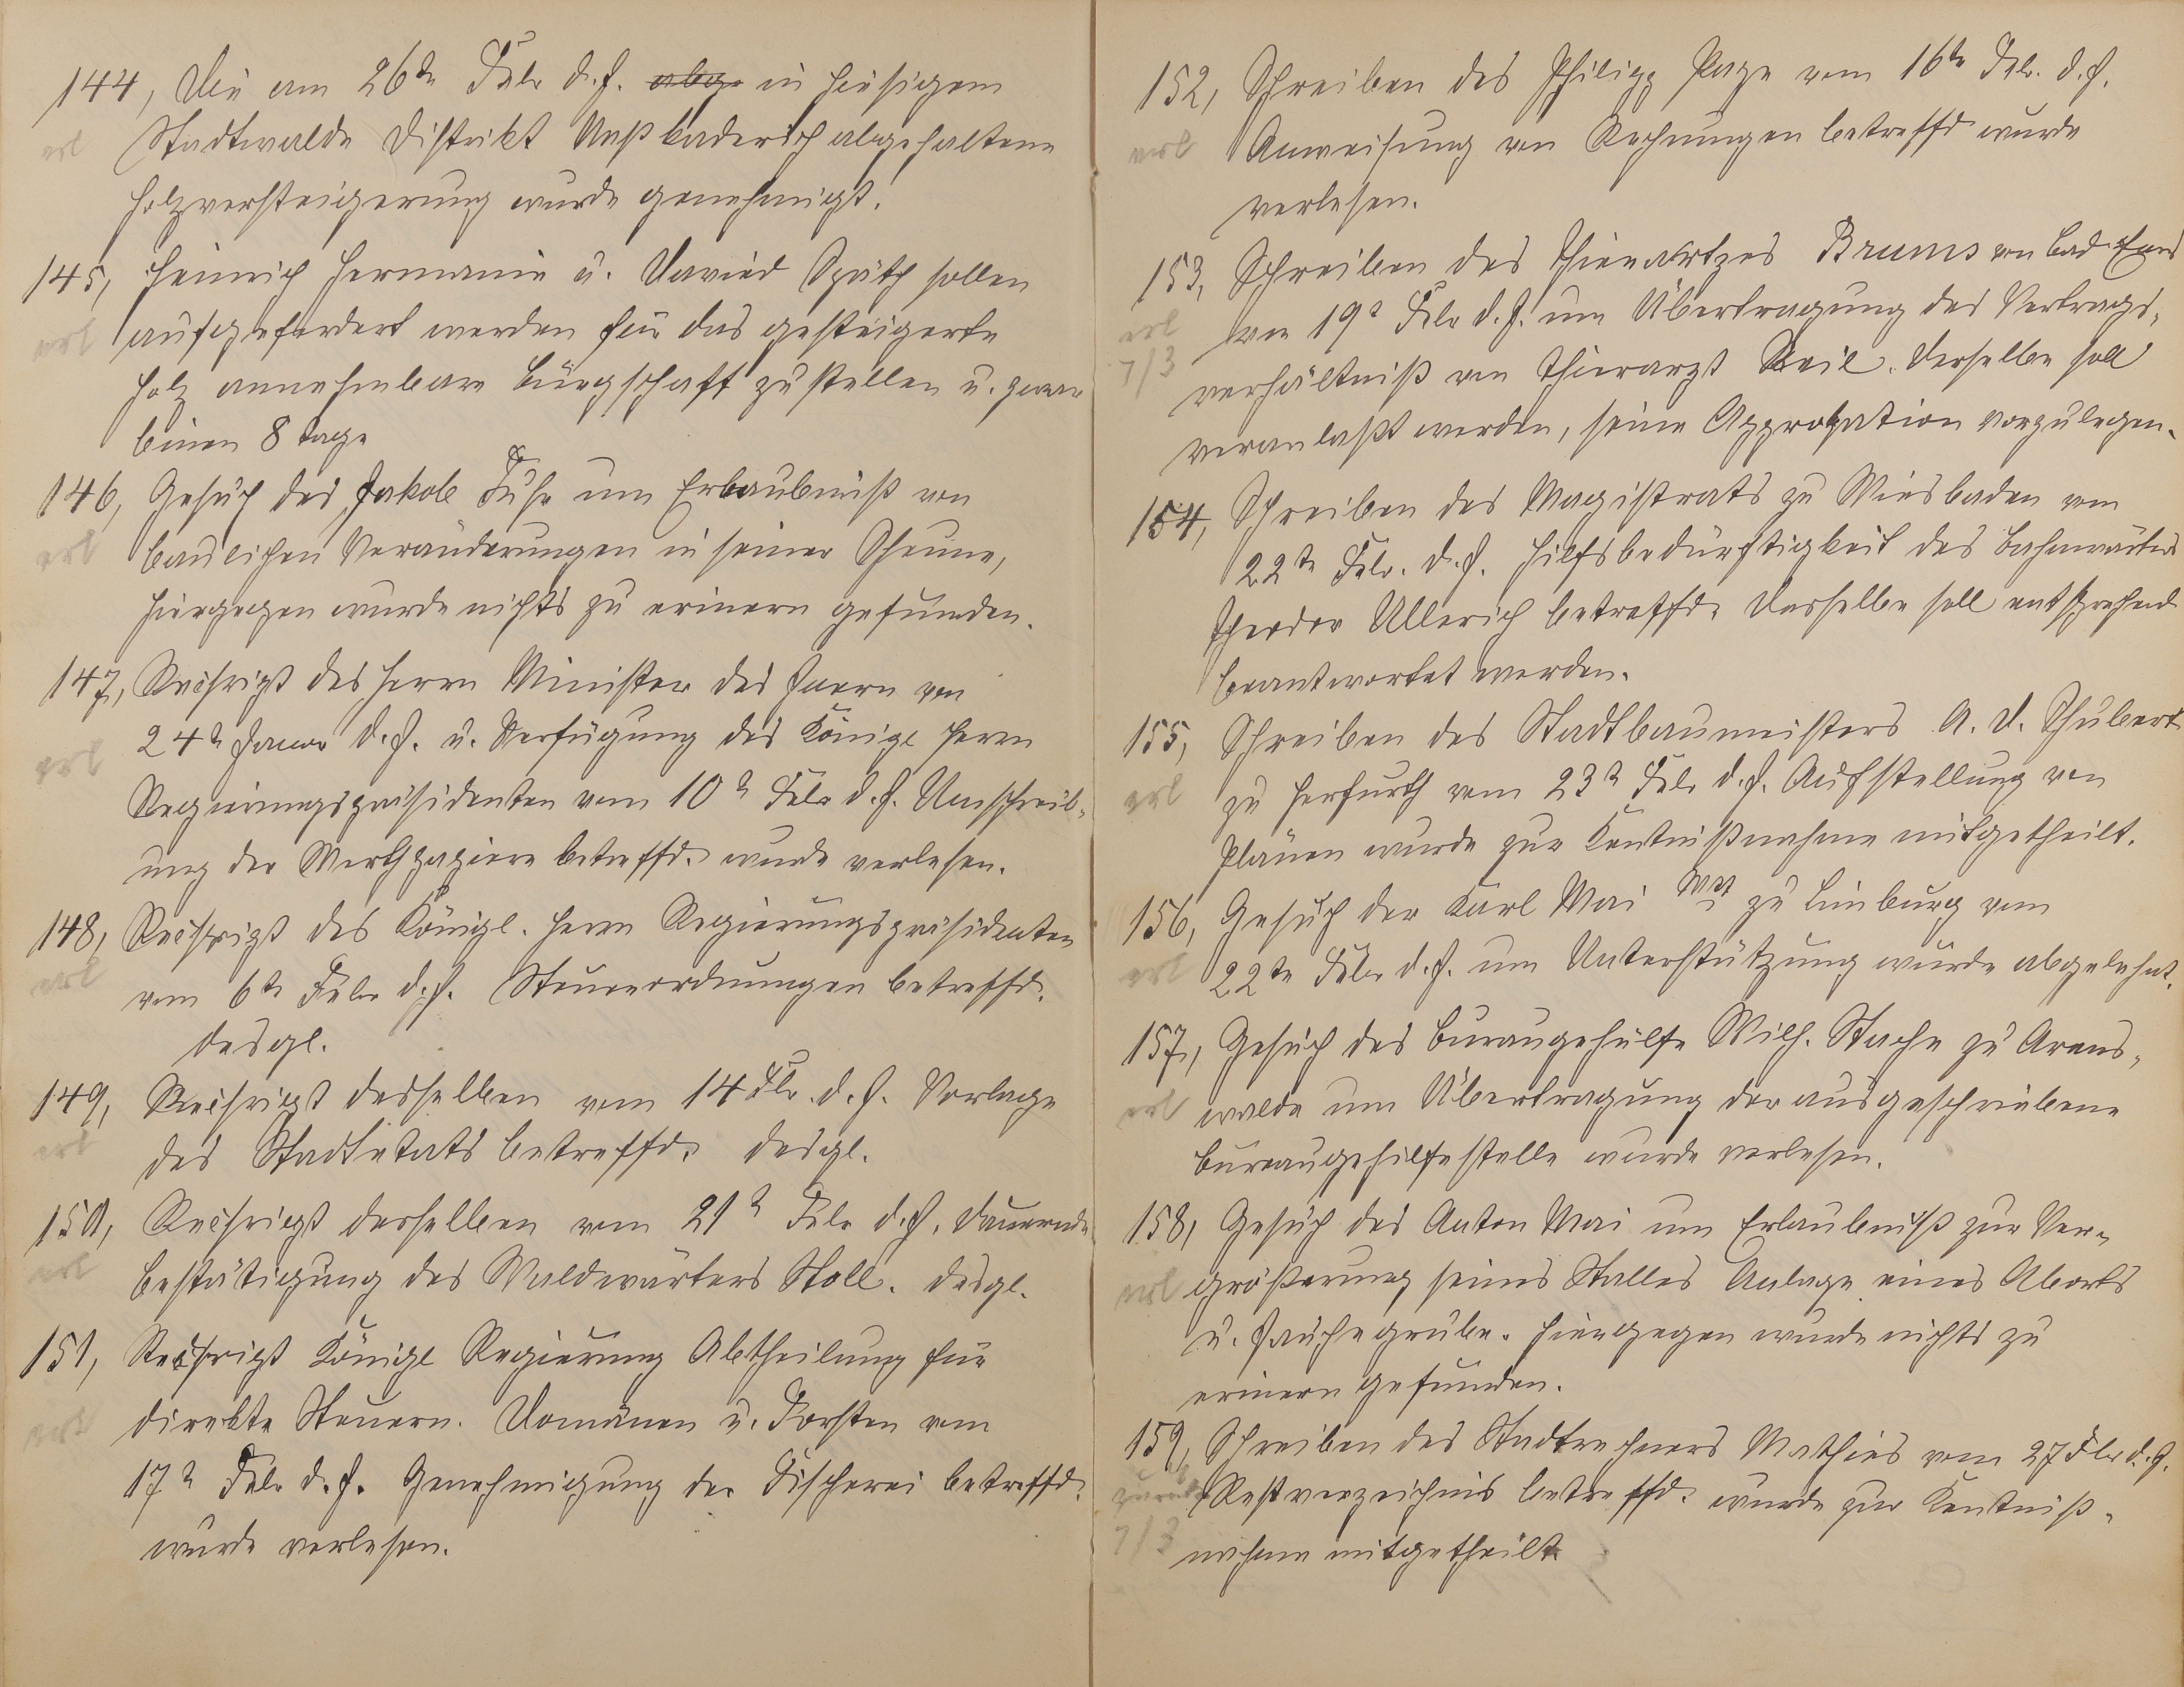 144, Die am 26te Febr d. J. abg in hiesigem
erl Stadtwalde Distrikt Naßkaderich abgehaltene
Holzversteigerung wurde genehmigt.
145, Heinrich Hermanni u. Davied Späth sollen
erl aufgefordert werden für das gesteigerte
Holz annehmbare Bürgschaft zu stellen u. zwar
binen 8 Tage
146, Gesuch des Jakob Fuhr um Erlaubniß von
erl baulichen Veränderungen in seiner Scheune,
hiergegen wurde nichts zu erinern gefunden.
147, Reskript des Herrn Minister des Inern von
erl 24t Januar d. J. u. Verfügung des Königl Herrn
Regierungspräsidenten vom 10t Febr d. J. Umschreib-
ung der Werthpapiere betreffd. wurde verlesen.
148, Reskript des Königl. Herrn Regierungspräsidenten
erl vom 6te Febr d. J. Steuerordnungen betreffd.
desgl.
149, Reskript desselben vom 14 Fbr. d. J. Vorlage
erl des Stadtetats betreffd. desgl.
150, Reskript desselben vom 21t Febr d. J. dauernde
erl Bestätigung des Waldwärters Stoll. desgl.
151, Reskript Königl Regierung Abtheilung für
erl direkte Steuern. Domänen u. Forsten vom
17t Febr d. J. Genehmigung der Fischerei betreffd.
wurde verlesen.
152, Schreiben des Philipp vom 16te Febr. d. J.
erl Anweisung von Rechnungen betreffd wurde
verlesen.
153, Schreiben des Thierarztes Brums von Bad Ems
erl vom 19t Febr d. J. um Übertragung des Vertrags-
7/3 verhältniß von Thierarzt Keil. Derselbe soll
veranlaßt werden, seine Approbation vorzulegen.
154, Schreiben des Magistrats zu Wiesbaden vom
22te Febr. d. J. Hilfsbedürftigkeit des Bahnwärters
Theodor Ullerich betreffd. Dasselbe soll entsprechend
beantwortet werden.
155, Schreiben des Stadtbaumeisters A. D. Schubert
erl zu Herfurth vom 23t Febr d. J. Aufstellung von
Plänen wurde zur Kentnißnahme mitgetheilt.
156, Gesuch der Karl Mai Wtt zu Limburg vom
erl 22te Febr d. J. um Unterstützung wurde abgelehnt.
157, Gesuch des Buraugehülfe Wilh. Stache zu Arens-
erl walde um Übertragung der ausgeschriebene
Bureaugehilfestelle wurde verlesen.
158, Gesuch des Anton Mai um Erlaubniß zur Ver-
erl größerung seines Stalles Anlage eines Aborts
u. Jauchegrube. Hiergegen wurde nichts zu
erinern gefunden.
159, Schreiben des Stadtrechners Mathies vom 27 Fbr d. J.
Restverzeichnis betreffd. wurde zur Kentniß-
7/3 nahme mitgetheilt